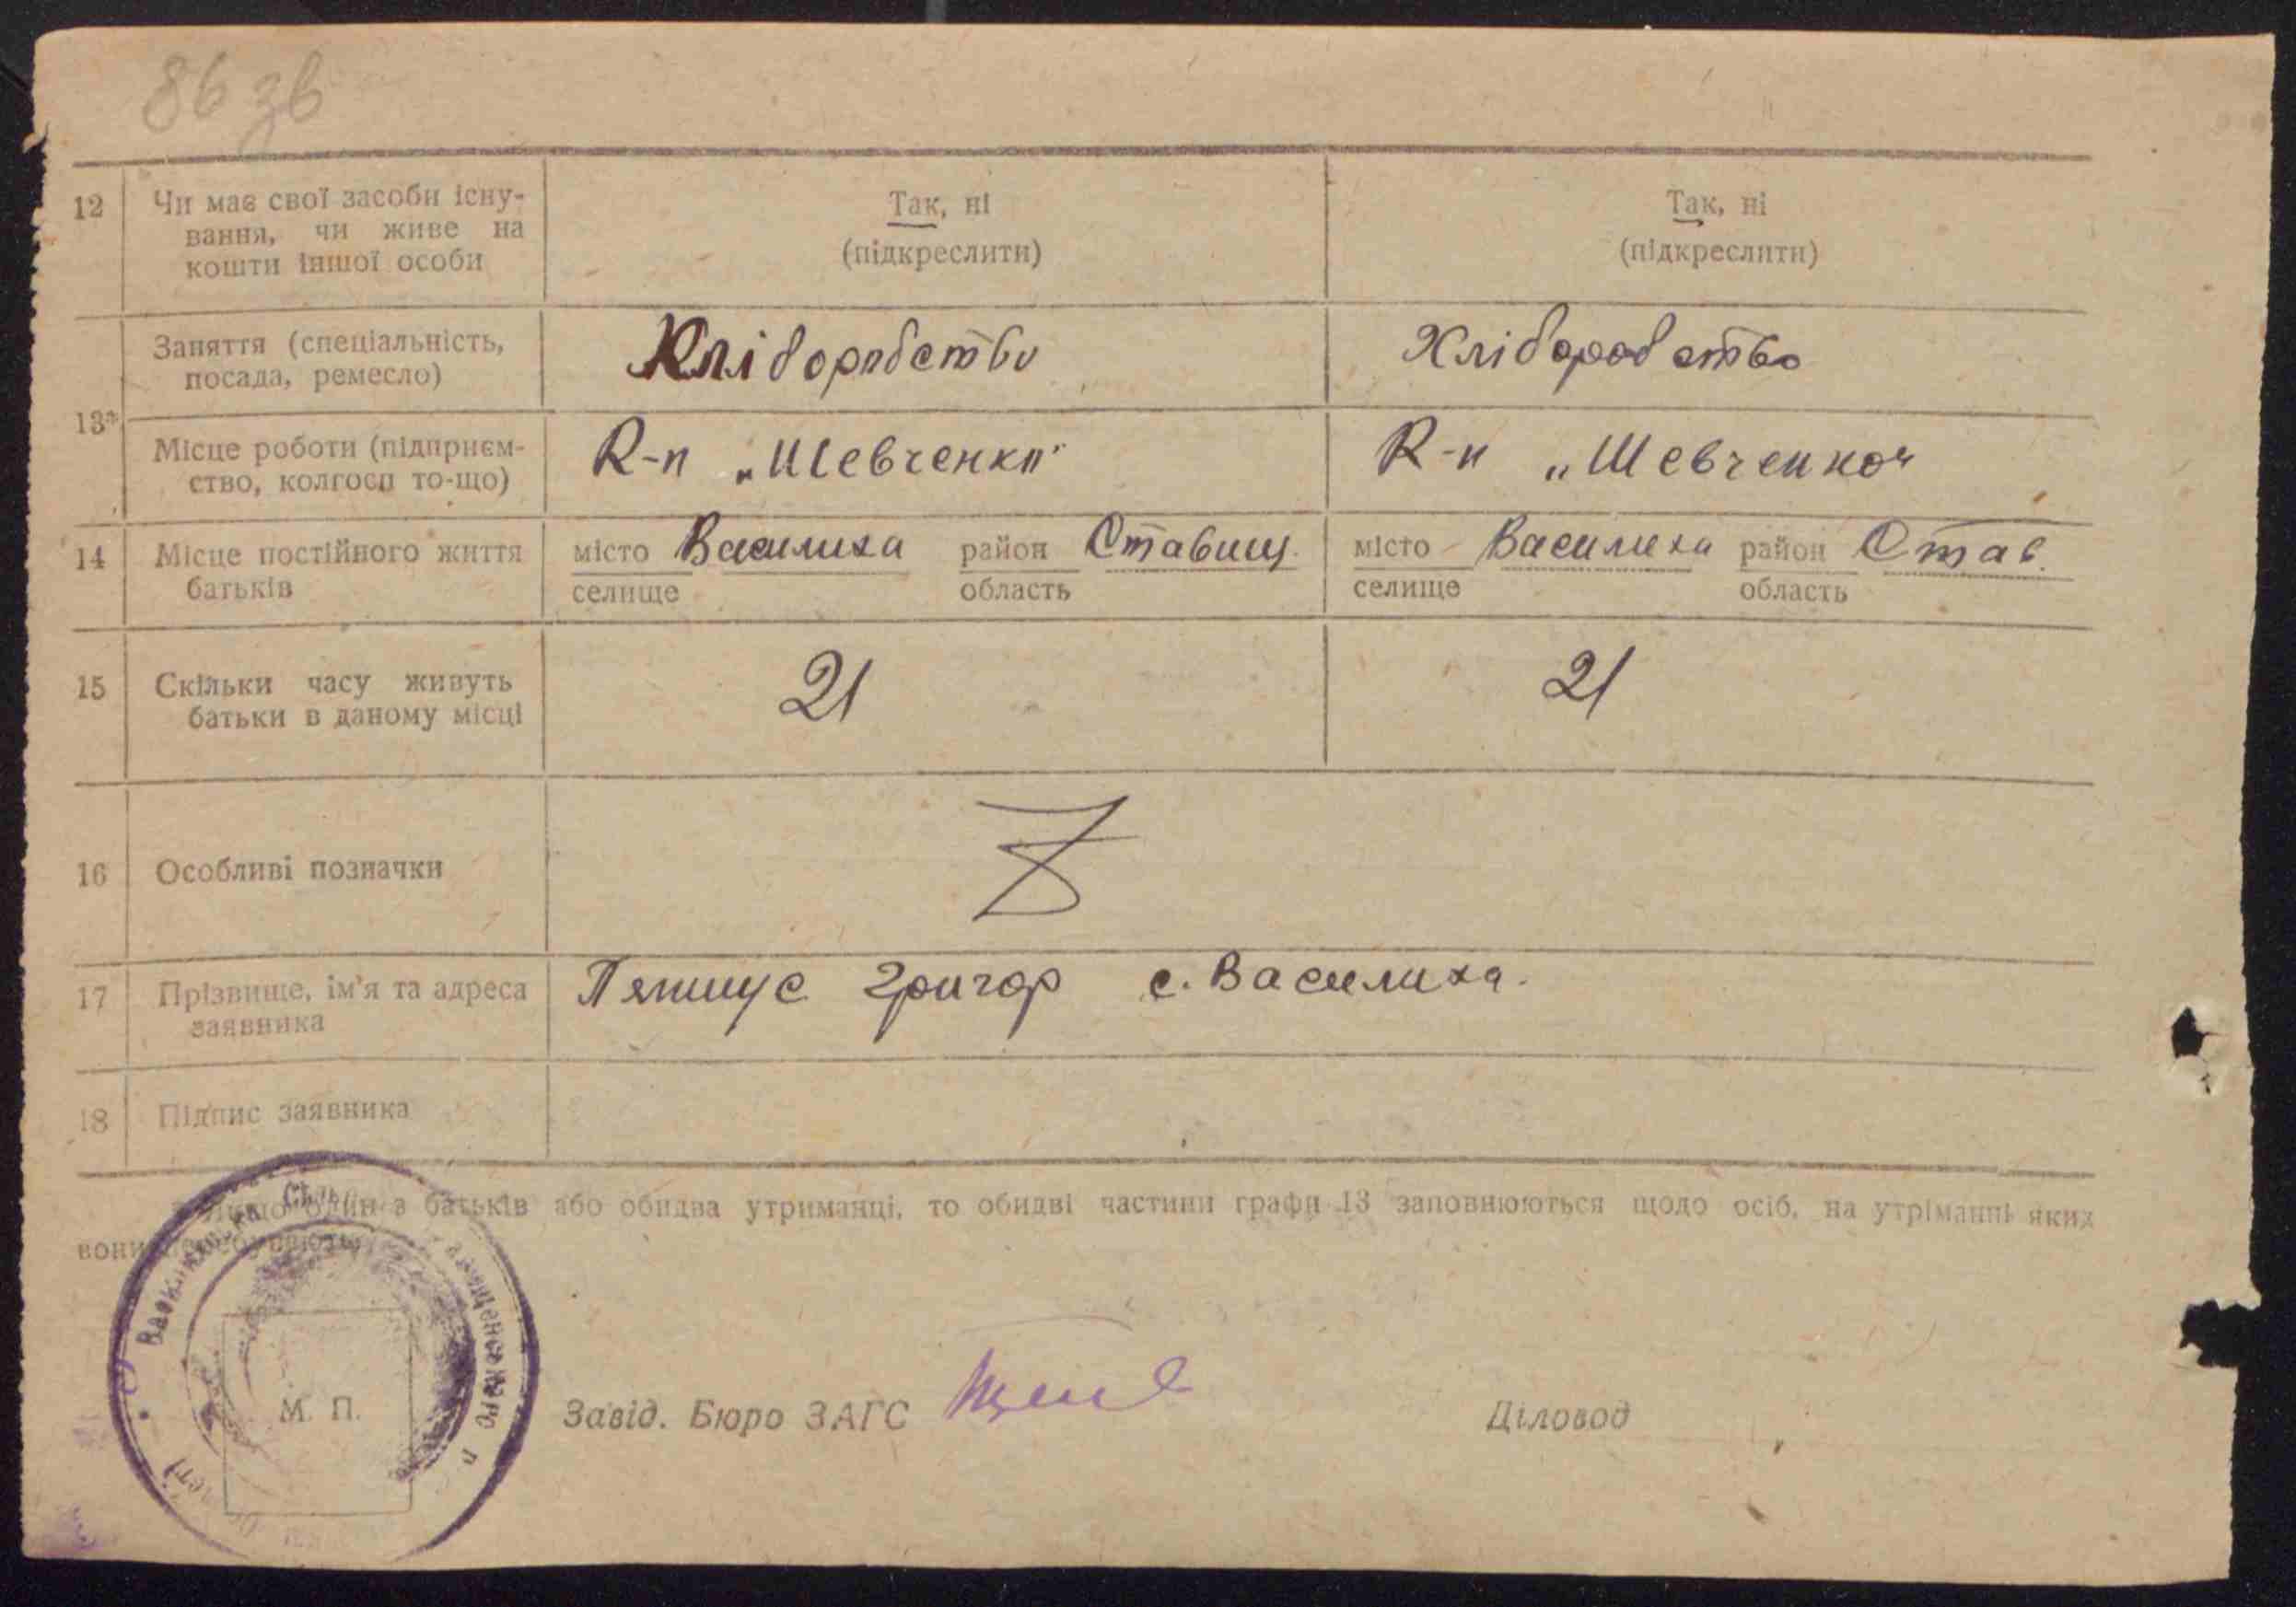 86 зв
12 Чи має свої засоби існу- Так, ні Так, ні
вання, чи живе на (підкреслити) (підкреслити)
кошти іншої особи
Заняття (спеціальність, Хліборобство Хліборобство
посада, ремесло)
13*
Місце роботи (підприєм- К-п „Шевченко" К-п „Шевченко"
ство, колгосп то-що)
14 Місце постійного життя місто Василиха район Ставищ. місто Василиха район Став.
батьків селище область селище область
15 Скільки часу живуть 21 21
батьки в даному місці
16 Особливі позначки
17 Прізвище, ім'я та адреса Григор с. Василиха.
заявника
18 Підпис заявника
Якщо один з батьків або обидва утриманці, то обидві частини графи 13 заповнюються щодо осіб, на утріманні яких
вони перебувають.
М. П.
Завід. Бюро ЗАГС Діловод